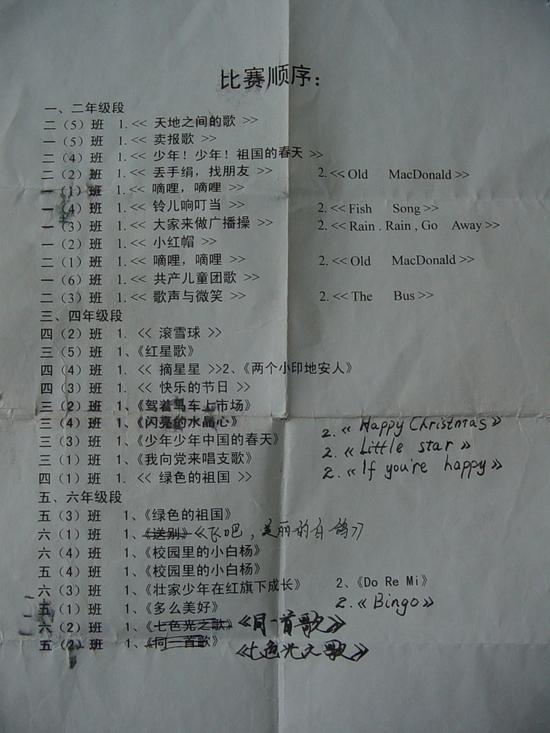 比赛顺序：
一、二年级段
二（5）班 1.<< 天地之间的歌 >>
一（5）班 1.<< 卖报歌 >>
二（4）班 1.<< 少年！少年！祖国的春天 >>
二（2）班 1.<< 丢手绢，找朋友 >> 2.<< Old MacDonald >>
一（1）班 1.<< 嘀哩，嘀哩 >>
一（4）班 1.<< 铃儿响叮当 >> 2.<< Fish Song >>
一（3）班 1.<< 大家来做广播操 2.<< Rain . Rain , Go Away >>
一（2）班 1.<< 小红帽 >>
二（1）班 1.<< 嘀哩，嘀哩 >> 2.<< Old MacDonald >>
一（6）班 1.<< 共产儿童团歌 >>
二（3）班 1.<< 歌声与微笑 >> 2.<< The Bus >>
三、四年级段
四（2）班 1. << 滚雪球 >>
三（5）班 1、《红星歌》
四（4）班 1. << 摘星星 >>2、《两个小印地安人》
四（3）班 1. << 快乐的节日 >>
三（2）班 1、《驾着马车上市场》
三（4）班 1、《闪亮的水晶心》 2.《Happy Christmas》
三（3）班 1、《少年少年中国的春天》 2.《Little star》
三（1）班 1、《我向党来唱支歌》 2.《If you're happy》
四（1）班 1. << 绿色的祖国 >>
五、六年级段
五（3）班 1、《绿色的祖国》
六（1）班 1、《送别》《飞吧，美丽的白鸽》
六（4）班 1、《校园里的小白杨》
五（4）班 1、《校园里的小白杨》
六（3）班 1、《壮家少年在红旗下成长》 2、《Do Re Mi》
五（1）班 1、《多么美好》 2.《Bingo》
六（2）班 1、《七色光之歌》《同一首歌》
五（2）班 1、《同一首歌》《七色光之歌》